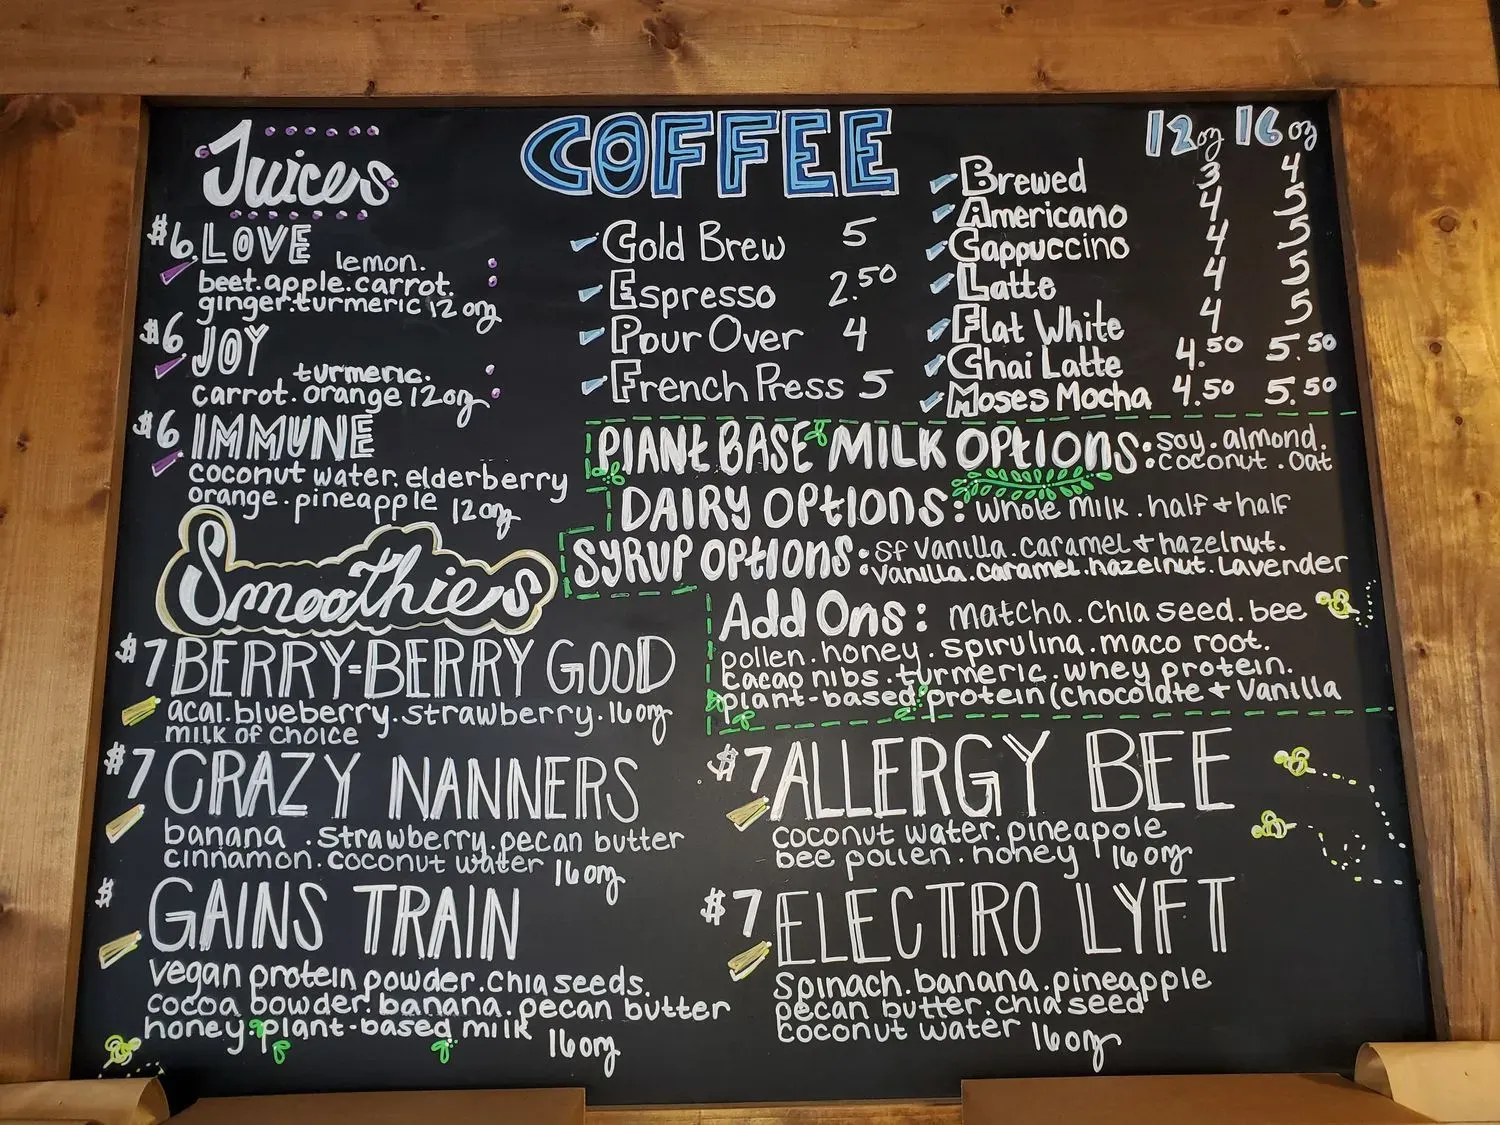 Juices
$6 LOVE lemon.
beet.apple.carrot.
ginger.turmeric 12 oz
$6 JOY turmeric.
carrot.orange 12oz
$6 IMMUNE
coconut water.elderberry
orange.pineapple 12oz
Smoothies
$7 BERRY-BERRY GOOD
acai.blueberry.strawberry.16oz
milk of choice
$7 CRAZY NANNERS
banana .strawberry.pecan butter
cinnamon.coconut water 16oz
$ GAINS TRAIN
vegan protein powder.chia seeds.
cocoa powder.banana.pecan butter
honey.plant-based milk 16oz
COFFEE
Cold Brew 5
Espresso 2.50
Pour Over 4
French Press 5
12oz 16oz
Brewed 3 4
Americano 4 5
Cappuccino 4 5
Latte 4 5
Flat White 4 5
Chai Latte 4.50 5.50
Moses Mocha 4.50 5.50
PLANT BASE MILK OPTIONS: soy.almond.
coconut.oat
DAIRY OPTIONS: whole milk.half + half
SYRUP OPTIONS: SF vanilla.caramel + hazelnut.
vanilla.caramel.hazelnut.Lavender
Add Ons: matcha.chia seed.bee
pollen.honey.spirulina.maco root.
cacao nibs.turmeric.whey protein.
plant-based protein (chocolate + vanilla
$7 ALLERGY BEE
coconut water.pineapole
bee pollen.honey 16oz
$7 ELECTRO LYFT
Spinach.banana.pineapple
pecan butter.chia seed
coconut water 16oz